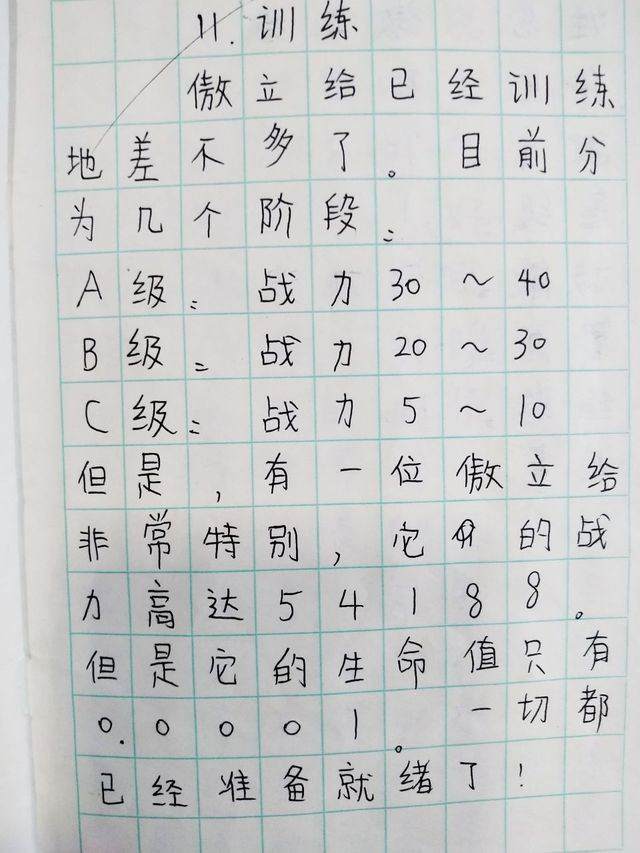 11. 训练
傲立给已经训练
地差不多了。目前分
为几个阶段：
A级：战力30～40
B级：战力20～30
C级：战力5～10
但是，有一位傲立给
非常特别，它的战
力高达54188。
但是它的生命值只有
0.0001。一切都
已经准备就绪了！